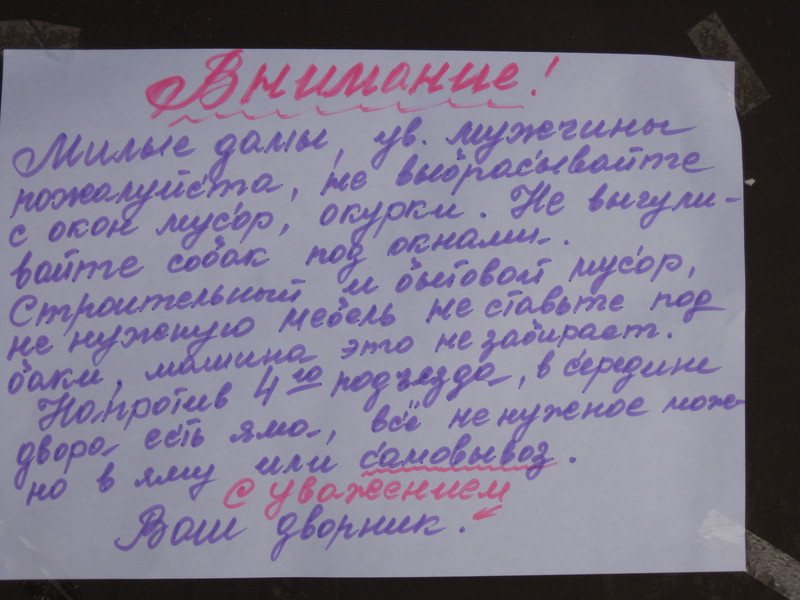 Внимание!
Милые дамы, ув. мужчины
пожалуйста, не выбрасывайте
с окон мусор, окурки. Не выгули-
вайте собак под окнами.
Строительный и бытовой мусор,
не нужную мебель не ставьте под
баки, машина это не забирает.
Напротив 4го подъезда, в середине
двора есть яма, всё не нужное мож-
но в яму или самовывоз.
С уважением
Ваш дворник.